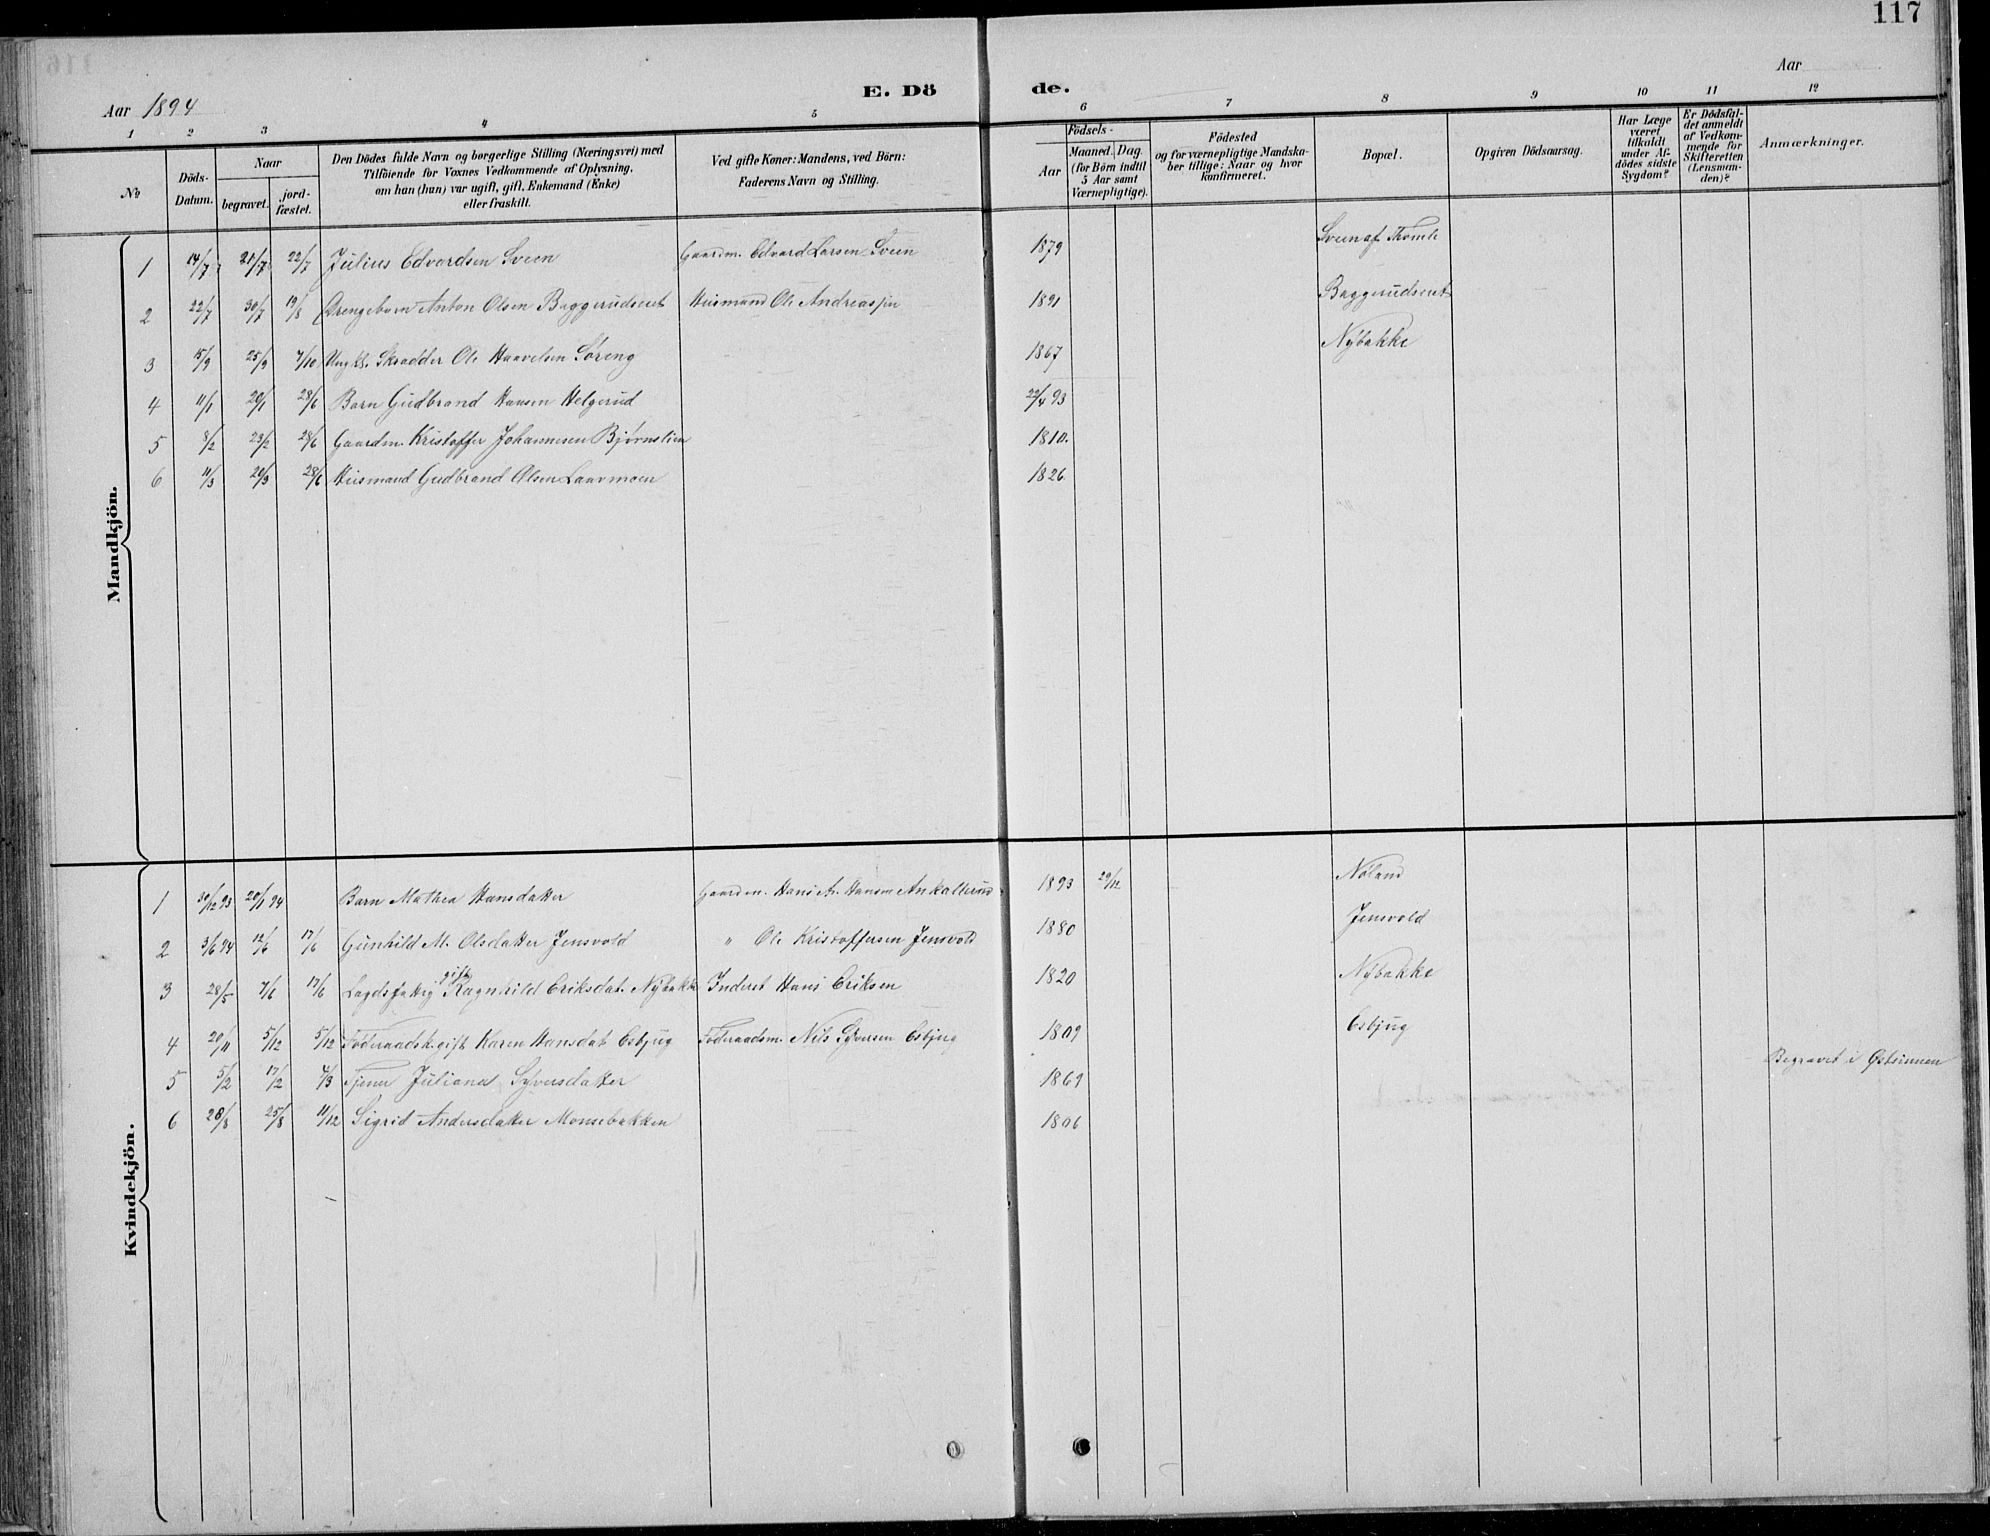 117
Aar 1894
E. Dö de.
Aar
1 2 3 4 5 6 7 8 9 10 11 12
No
Döds-Datum.
Naar
begravet.
jord-fæstet.
Den Dödes fulde Navn og borgerlige Stilling (Næringsvei) med
Tilföiende for Voxnes Vedkommende af Oplysning,
om han (hun) var ugift, gift, Enkemand (Enke)
eller fraskilt.
Ved gifte Koner: Mandens, ved Börn:
Faderens Navn og Stilling.
Födsels-
Aar
Maaned. Dag.
(for Börn indtil
5 Aar samt
Værnepligtige).
Födested
og for værnepligtige Mandska-
ber tillige: Naar og hvor
konfirmeret.
Bopæl.
Opgiven Dödsaarsag.
Har Læge
været
tilkaldt
under Af-
dödes sidste
Sygdom?
Er Dödsfal-
det anmeldt
af Vedkom-
mende for
Skifteretten
(Lensman-
den)?
Anmærkninger.
Mandkjön.
1 14/7 21/7 22/7 Julius Edvardsen Sveen Gaardm. Edvard Larsen Sveen 1879 Sveen af Thomle
2 22/7 30/7 19/8 Drengebarn Anton Olsen Baggerudseret Husmand Ole Andreassen 1891 Baggerudseret
3 15/9 25/9 7/10 Ungkl. Skradder Ole Haavelsen Søreng 1867 Nybakke
4 11/1 20/1 28/6 Barn Gudbrand Hansen Helgerud 22/4 93
5 8/2 23/2 28/6 Gaardm. Kristoffer Johannesen Bjørnslien 1810.
6 11/3 20/3 28/6 Husmand Gudbrand Olsen Laavmoen 1826
Kvindekjön.
1 30/12 93 20/1 94 Barn Mathea Hansdatter Gaardm. Hans A. Hansen Ankallerud 1893 29/12 Nøland
2 3/6 94 12/6 17/6 Gunhild M. Olsdatter Jensvold " Ole Kristoffersen Jensvold 1880 Jensvold
3 28/5 7/6 17/6 Lagdsfattig gift Ragnhild Eriksdat. Nybakke Inderst Hans Eriksen 1820 Nybakke
4 20/11 5/12 5/12 Føderaadsk. gift Karen Hansdat Esbjug Føderaadsm. Nils Syversen Esbjug 1809 Esbjug
5 5/2 17/2 4/3 Tjener Juliane Syversdatter 1869 Begravet i Østsinnen
6 28/8 25/8 11/12 Sigrid Andersdatter Monsebakken 1806